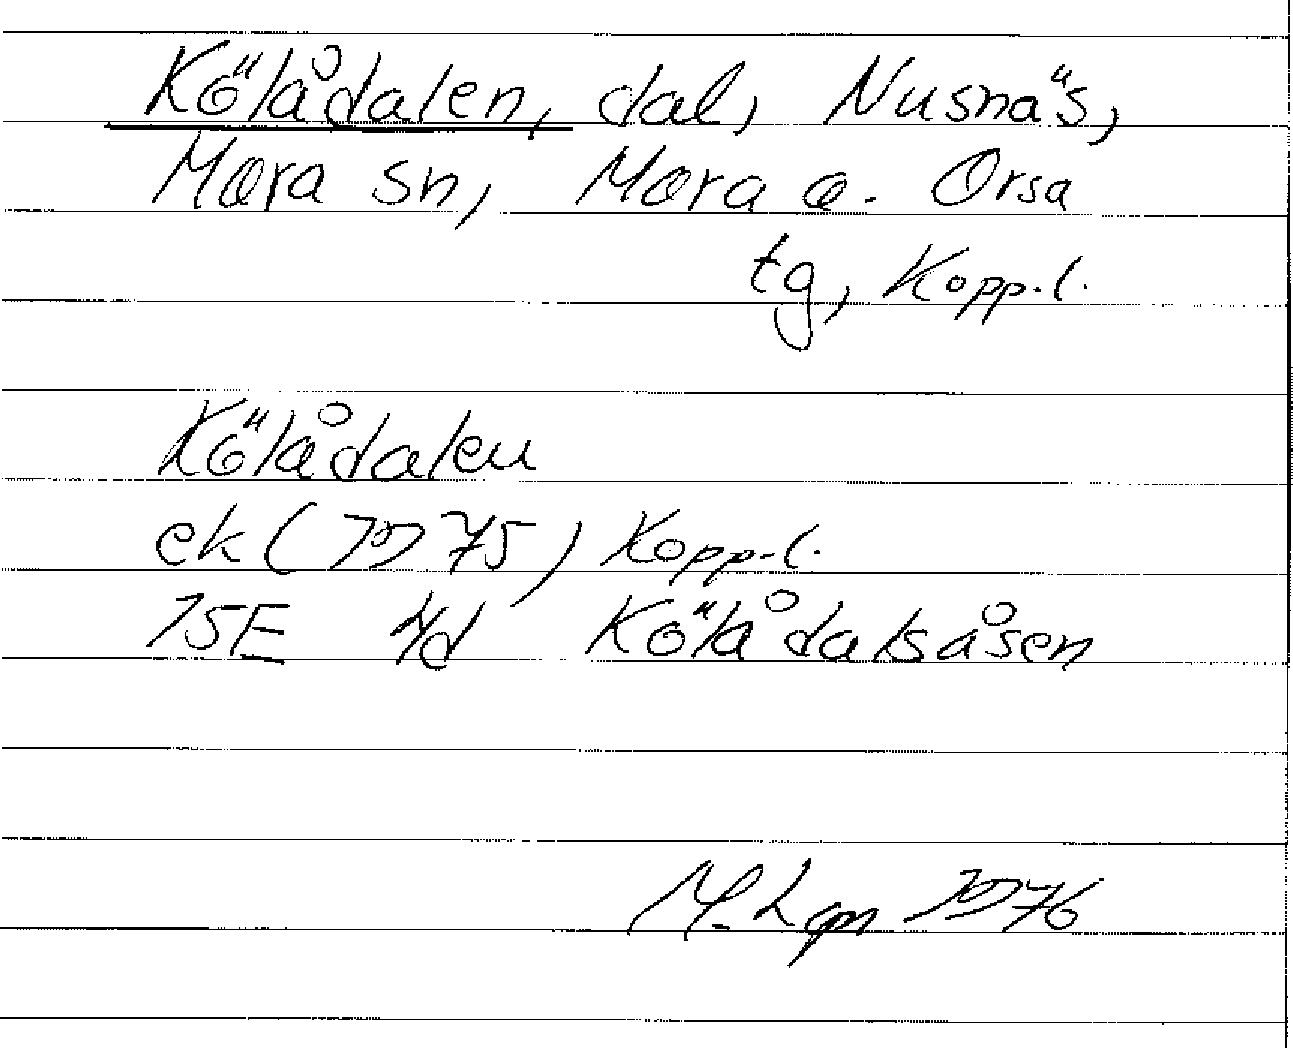 Kölådalen, dal, Nusnäs,
Mora sn, Mora o. Orsa
tg, Kopp.l.
Kölådalen
ek (1975) Kopp.l.
15E Kölådalsåsen
M. Lgn 1976